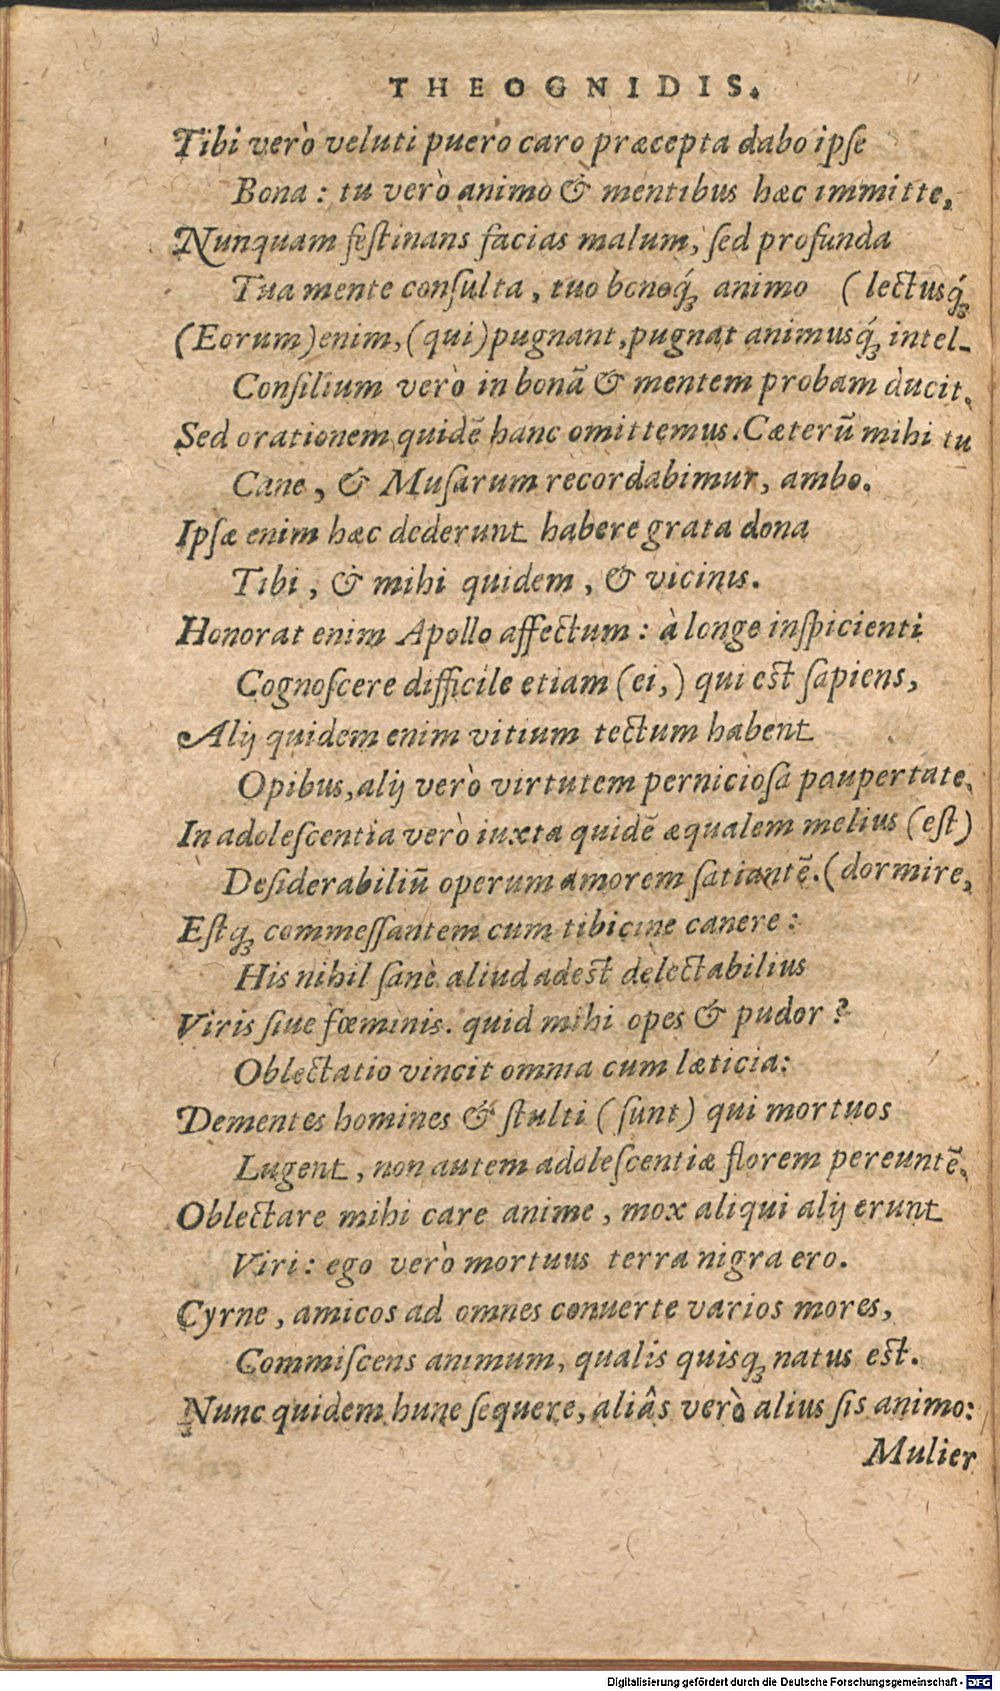 THEOGNIDIS.
Tibi verò veluti puero caro præcepta dabo ipſe
Bona : tu verò animo & mentibus hæc immitte,
Nunquam feſtinans facias malum, ſed profunda
Tua mente conſulta, tuo bonoq́ꝫ animo ( lectusq́ꝫ
(Eorum)enim,(qui)pugnant,pugnat animusq́ꝫ intel-
Conſilium verò in bonã & mentem probam ducit.
Sed orationem quidẽ hanc omittemus.Cæterũ mihi tu
Cane, & Muſarum recordabimur, ambo.
Ipſæ enim hæc dederunt habere grata dona
Tibi, & mihi quidem, & vicinis.
Honorat enim Apollo affectum : à longe inſpicienti
Cognoſcere difficile etiam (ei,) qui est ſapiens,
Alij quidem enim vitium tectum habent
Opibus,alij verò virtutem pernicioſa paupertate.
In adoleſcentia verò iuxta quidẽ æqualem melius (eſt)
Deſiderabiliũ operum amorem ſatiantẽ.(dormire,
Eſtqꝫ commeſſantem cum tibicine canere :
His nihil ſanè aliud adest delectabilius
Viris ſiue fœminis. quid mihi opes & pudor ?
Oblectatio vincit omnia cum læticia:
Dementes homines & ſtulti (ſunt) qui mortuos
Lugent, non autem adoleſcentiæ florem pereuntẽ.
Oblectare mihi care anime, mox aliqui alij erunt
Viri : ego verò mortuus terra nigra ero.
Cyrne, amicos ad omnes conuerte varios mores,
Commiſcens animum, qualis quisqꝫ natus est.
Nunc quidem hunc ſequere, aliâs verò alius ſis animo:
Mulier
Digitalisierung gefördert durch die Deutsche Forschungsgemeinschaft - DFG